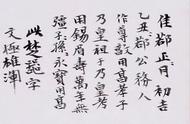 佳鄀正月初吉
乙丑鄀公務人
作尊敦用享孝于
乃皇祖于乃皇考
用錫眉壽萬年無
疆子孫永寶用享
此楚器字
文極雄渾